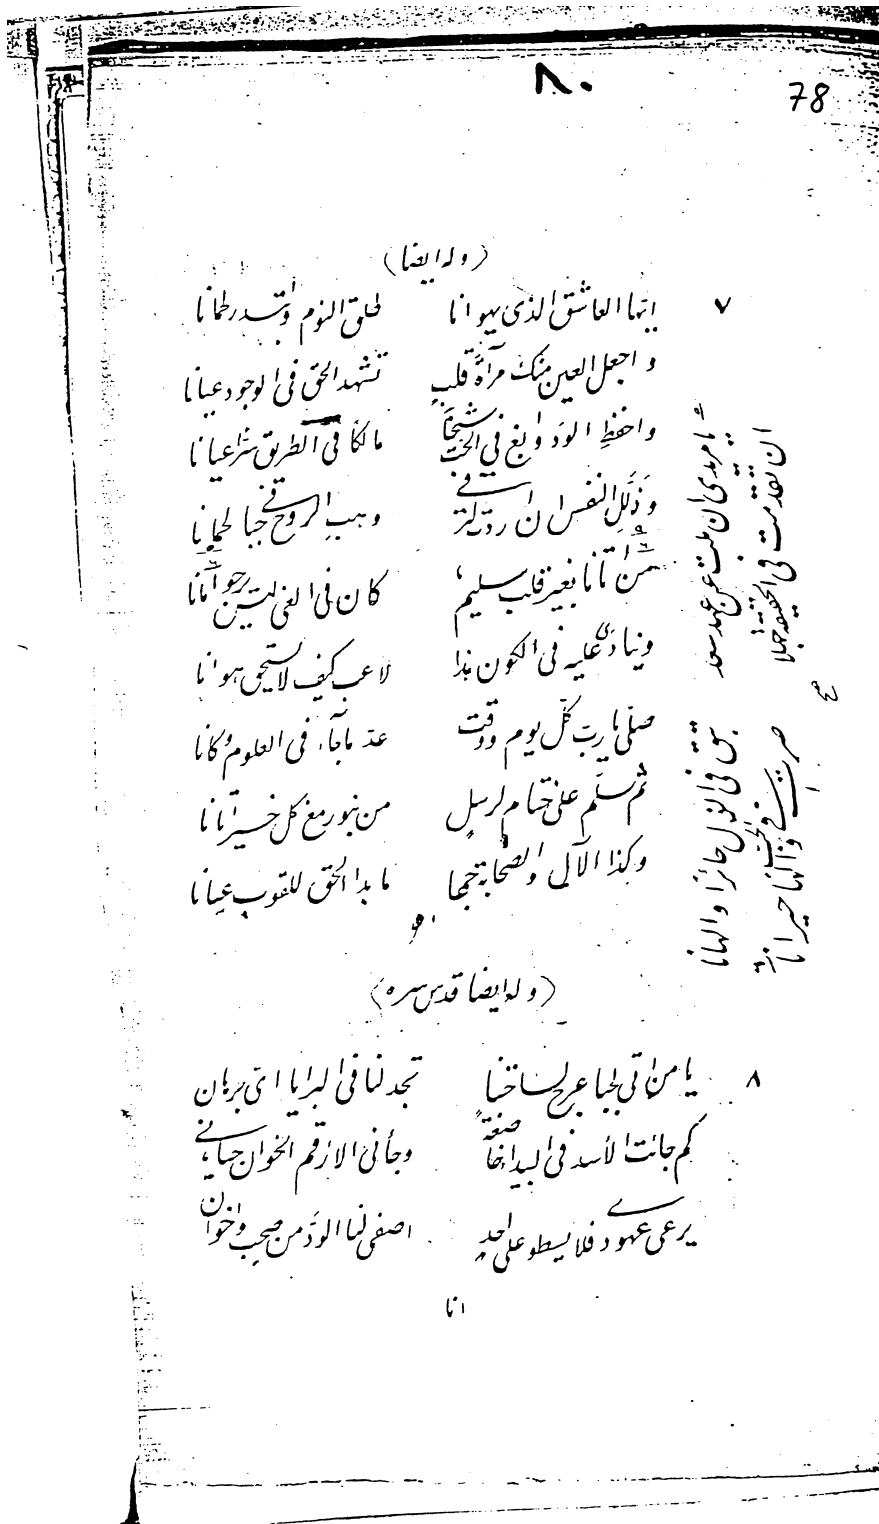 ٨٠
78
(وله ايضا)
٧
ايها العاشق الذى يهوانا خلق النوم واقتدر لحمانا
واجعل العين منك مرآة قلبٍ تشهد الحق فى الوجود عيانا
واحفظِ الود وابغ في الحبّ شيخاً مالكا في الطريق سرّا عيانا
وذلّل النفس ان اردت وهب الروح في حبا لحمانا
من اتانا بغير قلب سليم كان فى الغي ليس يرجو امانا
وينادى عليه فى الكون هذا لاعب كيف لا يستحق هوانا
صلّى يا ربّ كلّ يوم ووقت عدّ ماجآء فى العلوم وكانا
ثم سلّم على ختام لرسلٍ من بنور مع كل خير اتانا
وكذا الآلى والصحابة جمعا ما بدا الحق للقوب عيانا
يا مريدى ان ملت عن عهد سعد تبق في الذل حائرًا والهانا
ان تقدمت فى الحقيقة جهلا صرت في الحب والها حيرانا
صح
(وله ايضا قدس سره)
٨
يا من اتى لجبا عرج لساحتنا تجد لنا فى البرايا اىّ برهان
كم جائت الأسد فى البيدا خاضعةً وجأنى الارقم الخوان حيانى
يرعى عهودى فلا يسطو على احدٍ اصفى لنا الودّ من صحب واخوان
انا